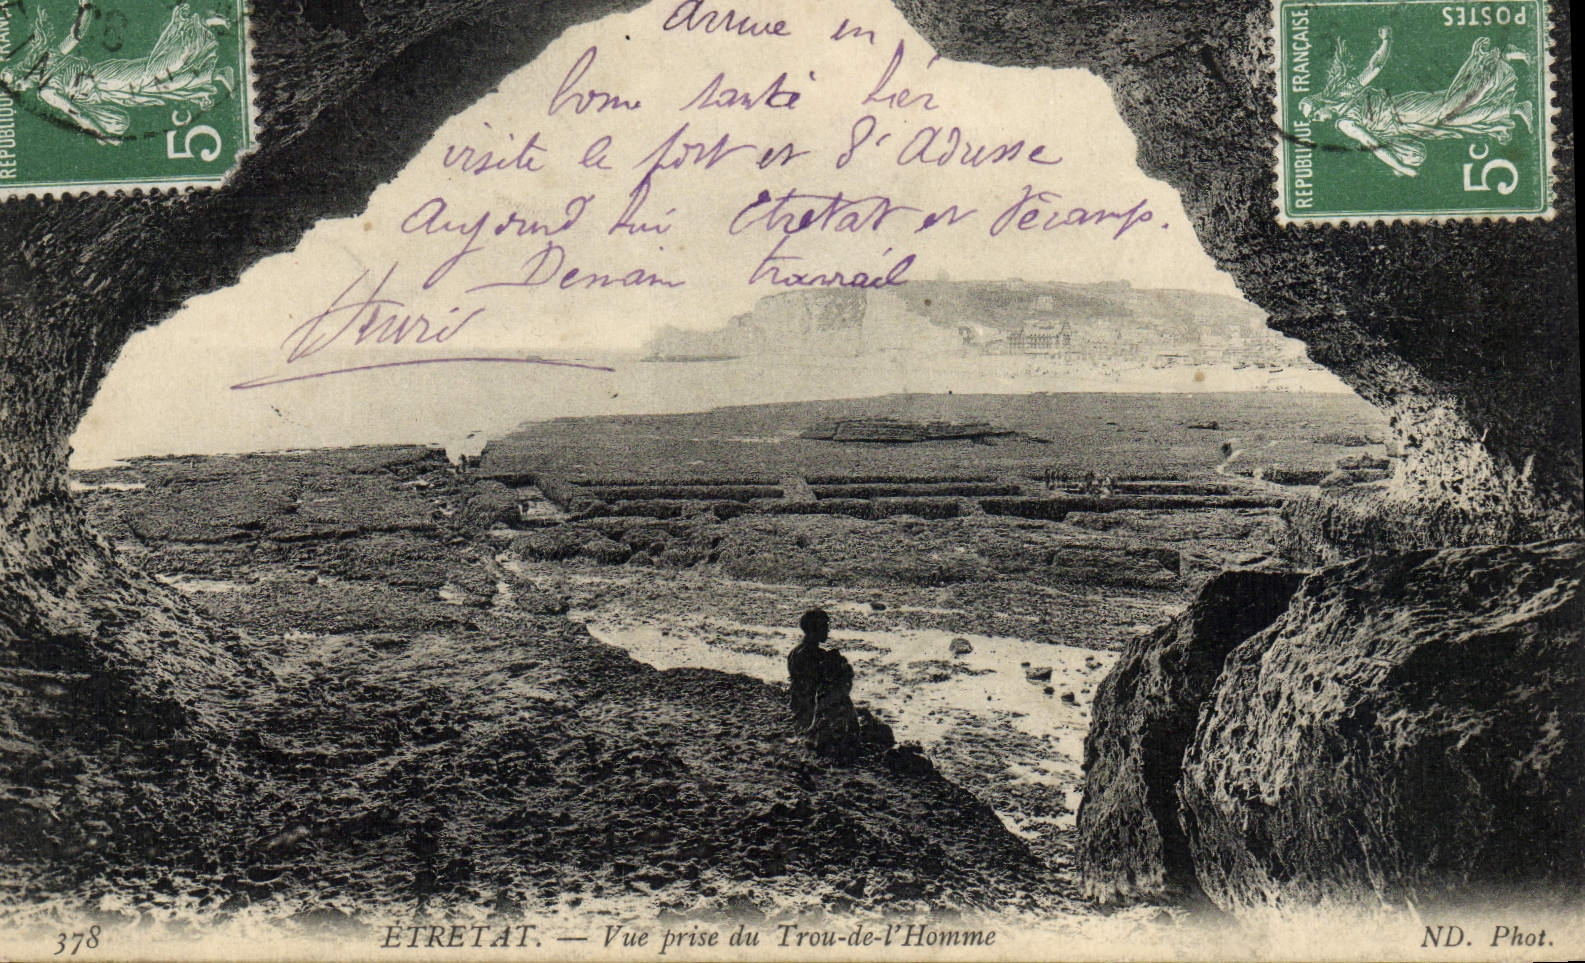 Arrive en
bonne santé hier
visite le port et St Adresse
Aujourd'hui Etretat et Fécamp.
Demain travail
Henri
RÉPUBLIQUE FRANÇAISE
5c
RÉPUBLIQUE FRANÇAISE
POSTES
5c
378
ÉTRETAT. — Vue prise du Trou-de-l'Homme
ND. Phot.